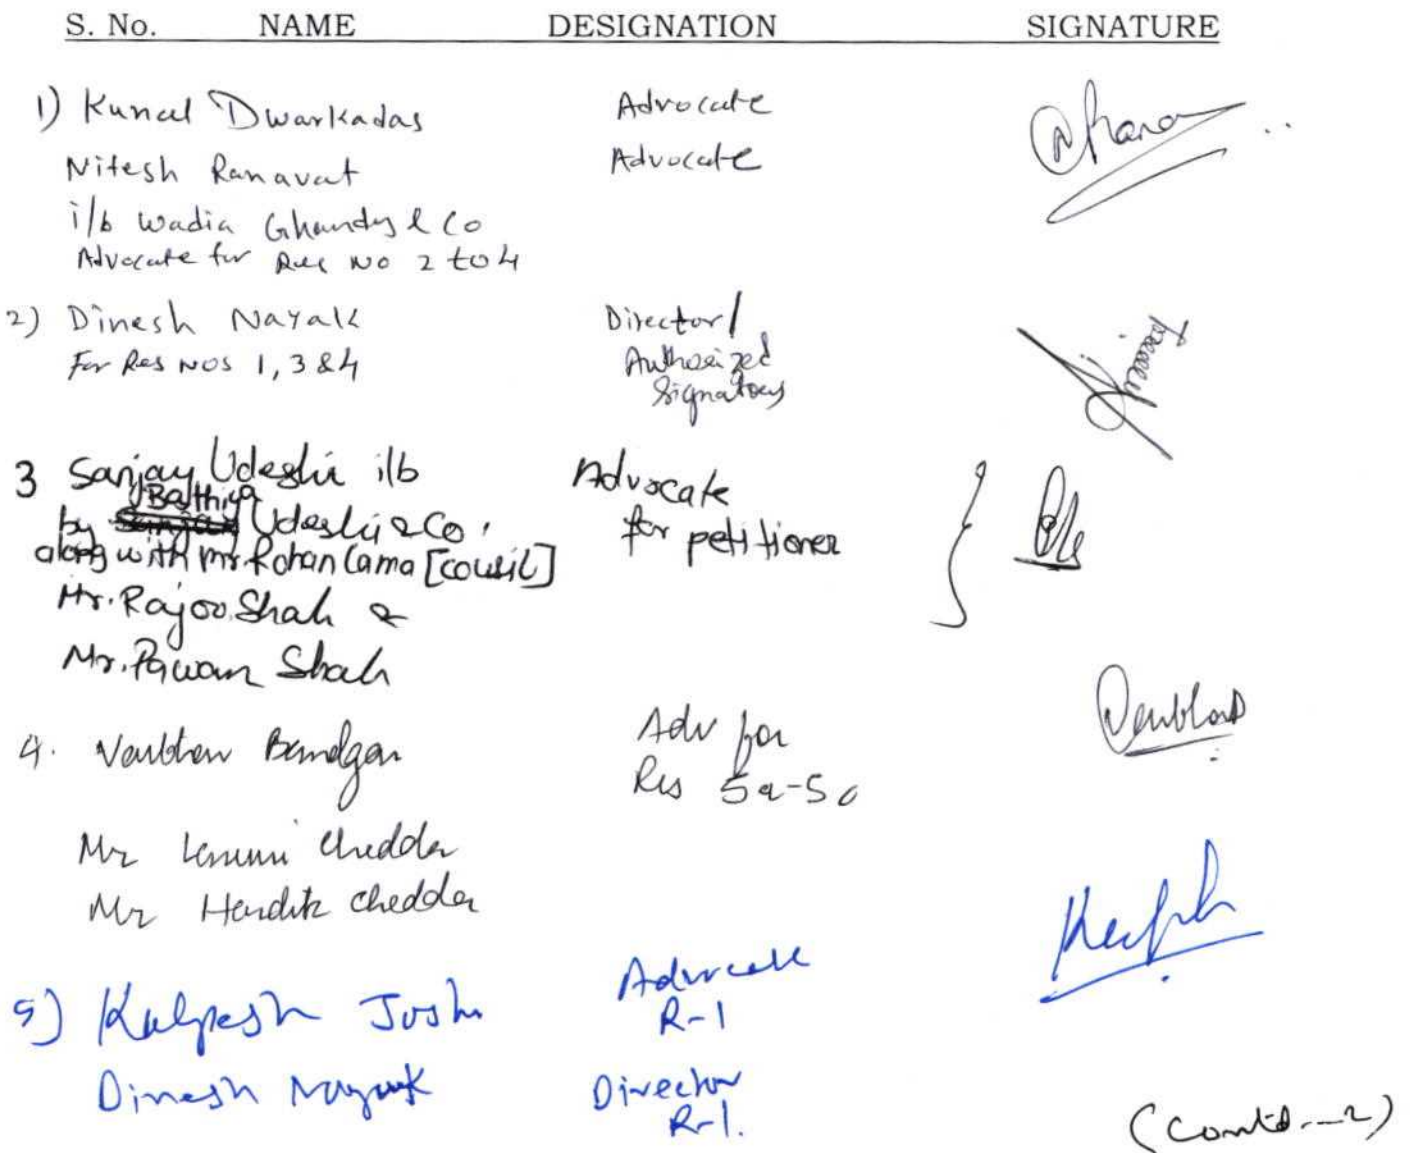 S. No. NAME DESIGNATION SIGNATURE
1) Kunal Dwarkadas Advocate
Nitesh Ranavat Advocate
i/b Wadia Ghandy & Co
Advocate for Res No 2 to 4
2) Dinesh Nayak Director/
For Res Nos 1, 3 & 4 Authorized
Signatory
3 Sanjay Udeshi i/b Advocate
Bathiya
by Udeshi & Co. for petitioner
along with Mr. Rohan Cama [cousil]
Mr. Rajoo Shah &
Mr. Pawan Shah
4. Vaibhav Bandgar Adv for
Res 5a-5c
Mr Chedda
Mr Hardik Chedda
5) Kalpesh Joshi Advocate
R-1
Dinesh Nayak Director
R-1.
(Contd...2)